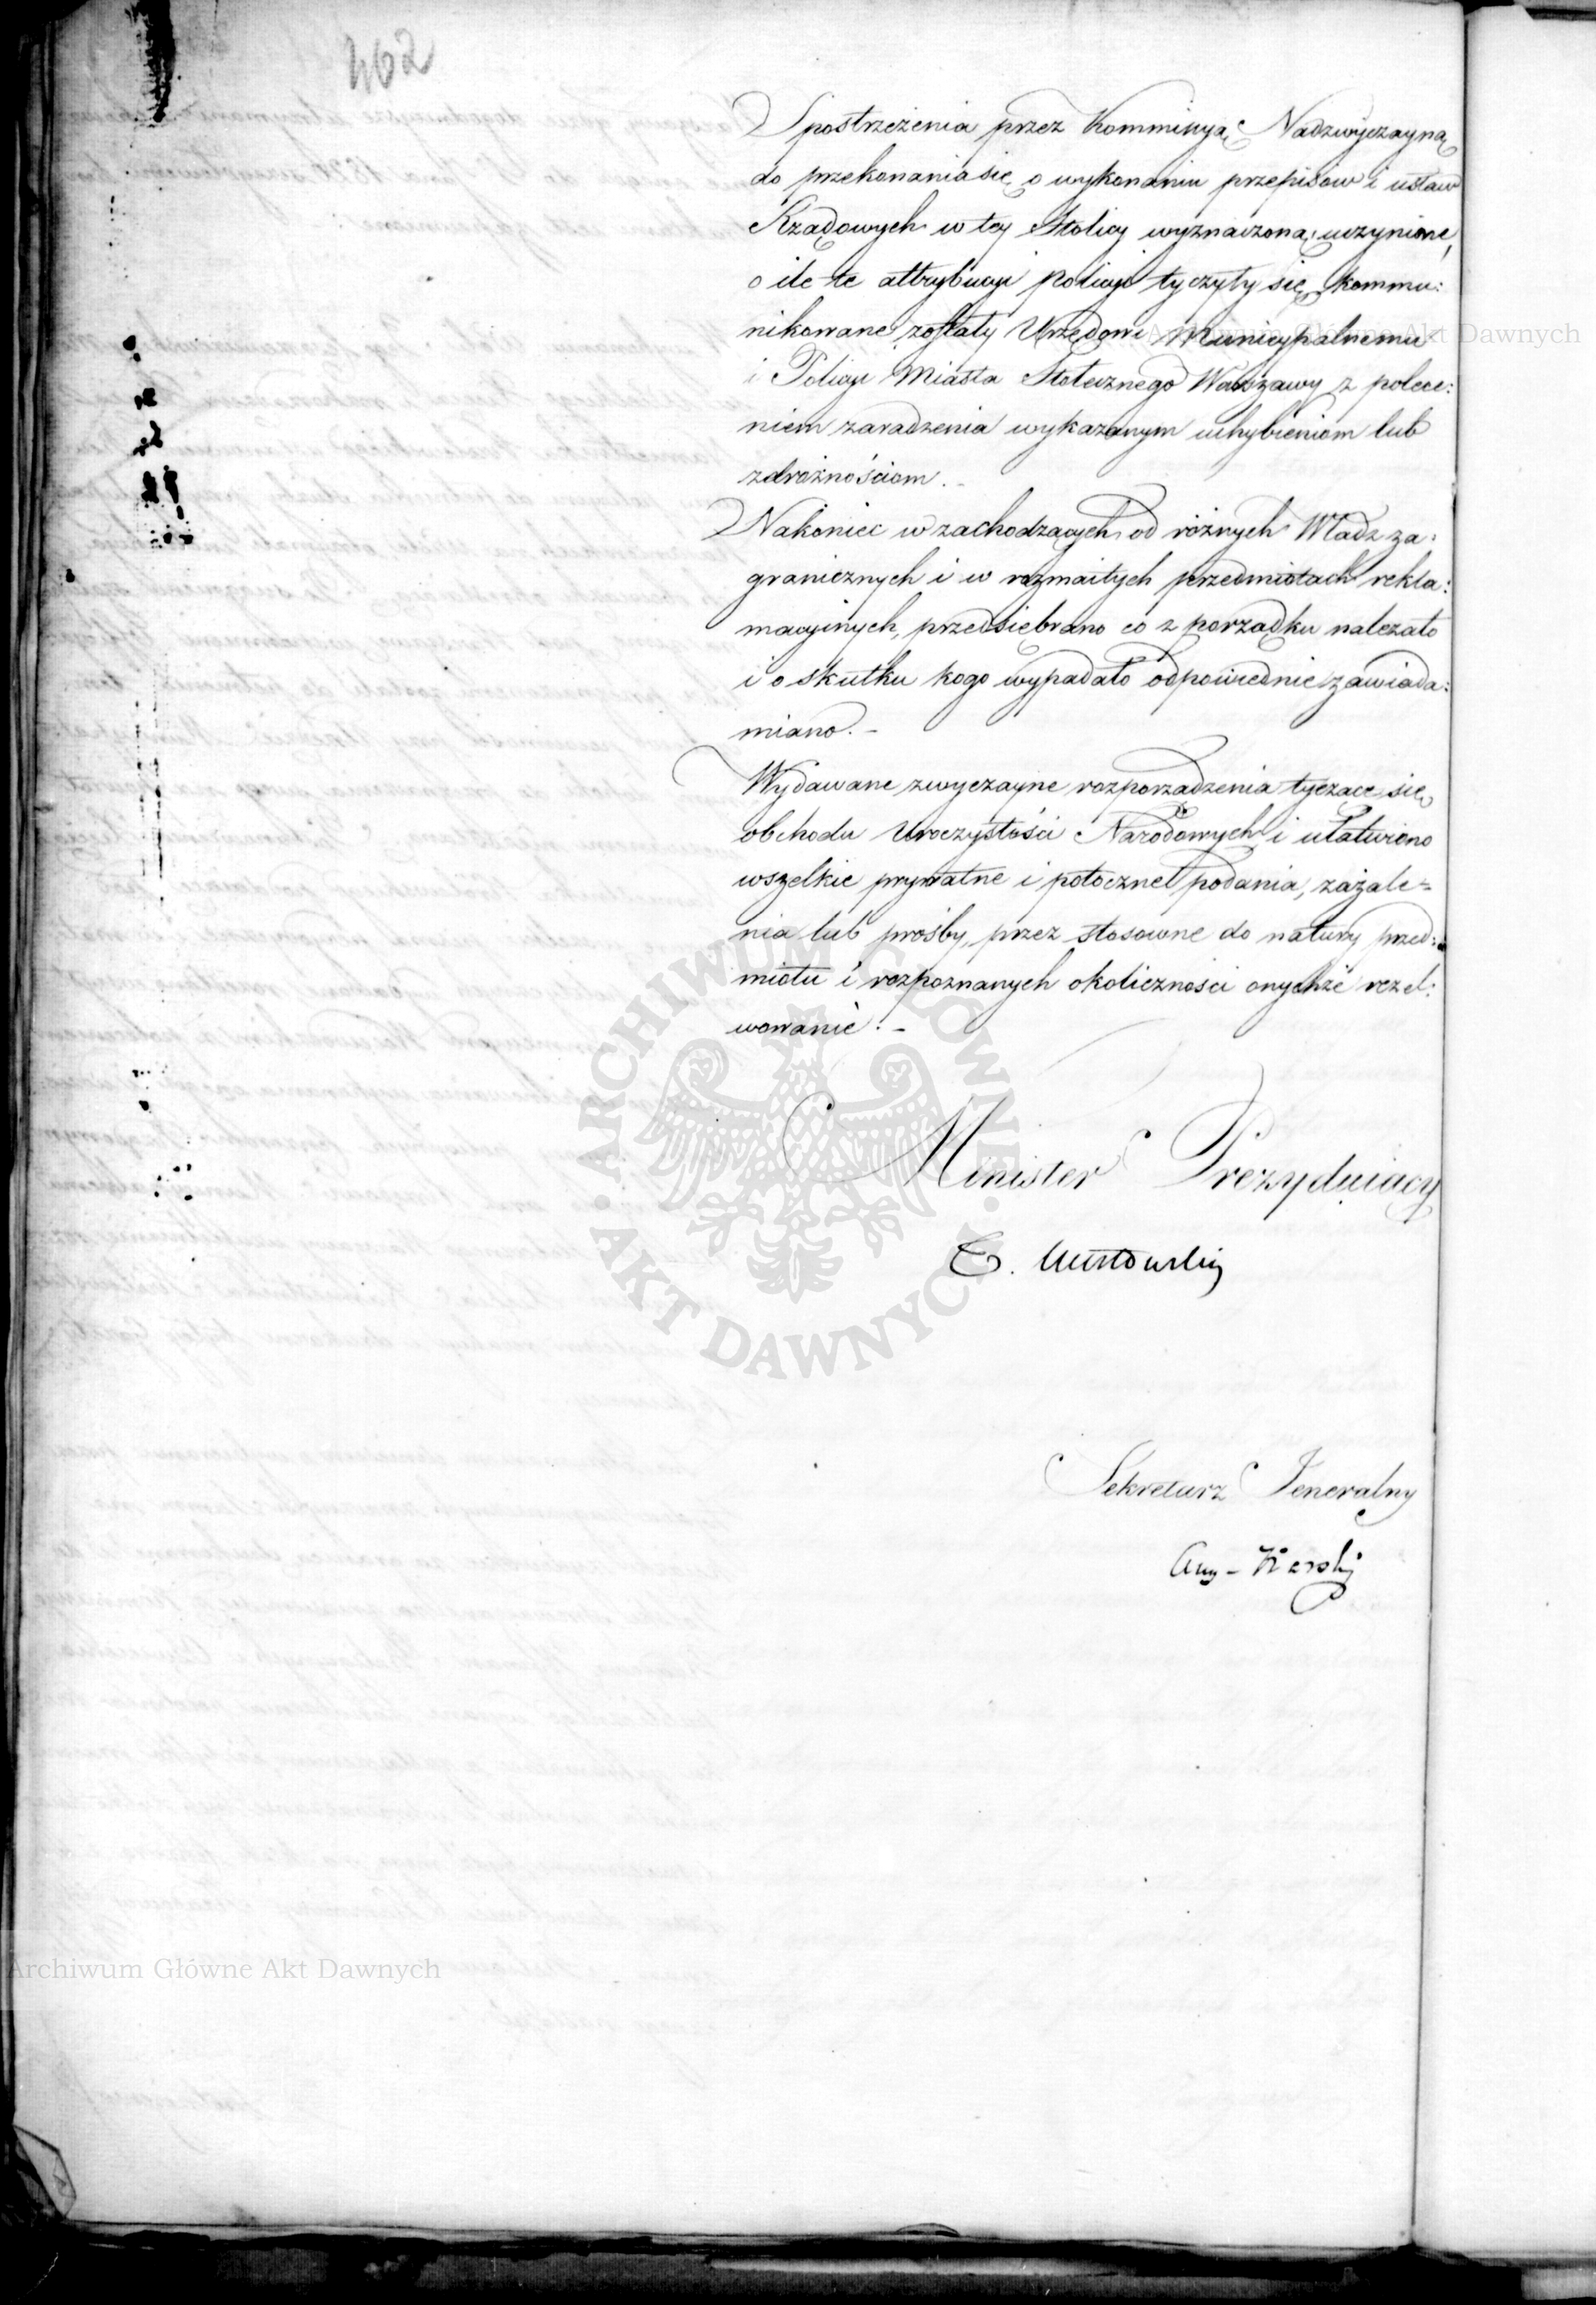 462
Spostrzeżenia przez Kommissyą Nadzwyczayną
do przekonania się o wykonaniu przepisow i ustaw
Rządowych w tey Stolicy wyznaczoną, uczynione,
o ile te attrybucyi Policyi tyczyły się, kommu:
nikowane zostały Urzędowi Municypalnemu
i Policyi Miasta Stołecznego Warszawy z polece:
niem zaradzenia wykazanym uchybieniom lub
zdrożnościom. -
Nakoniec w zachodzących od różnych Władz za:
granicznych i w rozmaitych przedmiotach rekla:
macyinych, przedsiębrano co z porządku należało
i o skutku kogo wypadało odpowiednie zawiada:
miano. -
Wydawane zwyczayne rozporządzenia tyczące się
obchodu Uroczystości Narodowych i ułatwiono
wszelkie prywatne i potoczne podania, zażale=
nia lub prośby, przez stosowne do natury przed:
miotu i rozpoznanych okoliczności onychże rezol:
wowanie. -
Minister Prezyduiący
T. Mostowski
Sekretarz Jeneralny
Aug. Karski
Archiwum Główne Akt Dawnych
ARCHIWUM GŁÓWNE · AKT DAWNYCH ·
Archiwum Główne Akt Dawnych